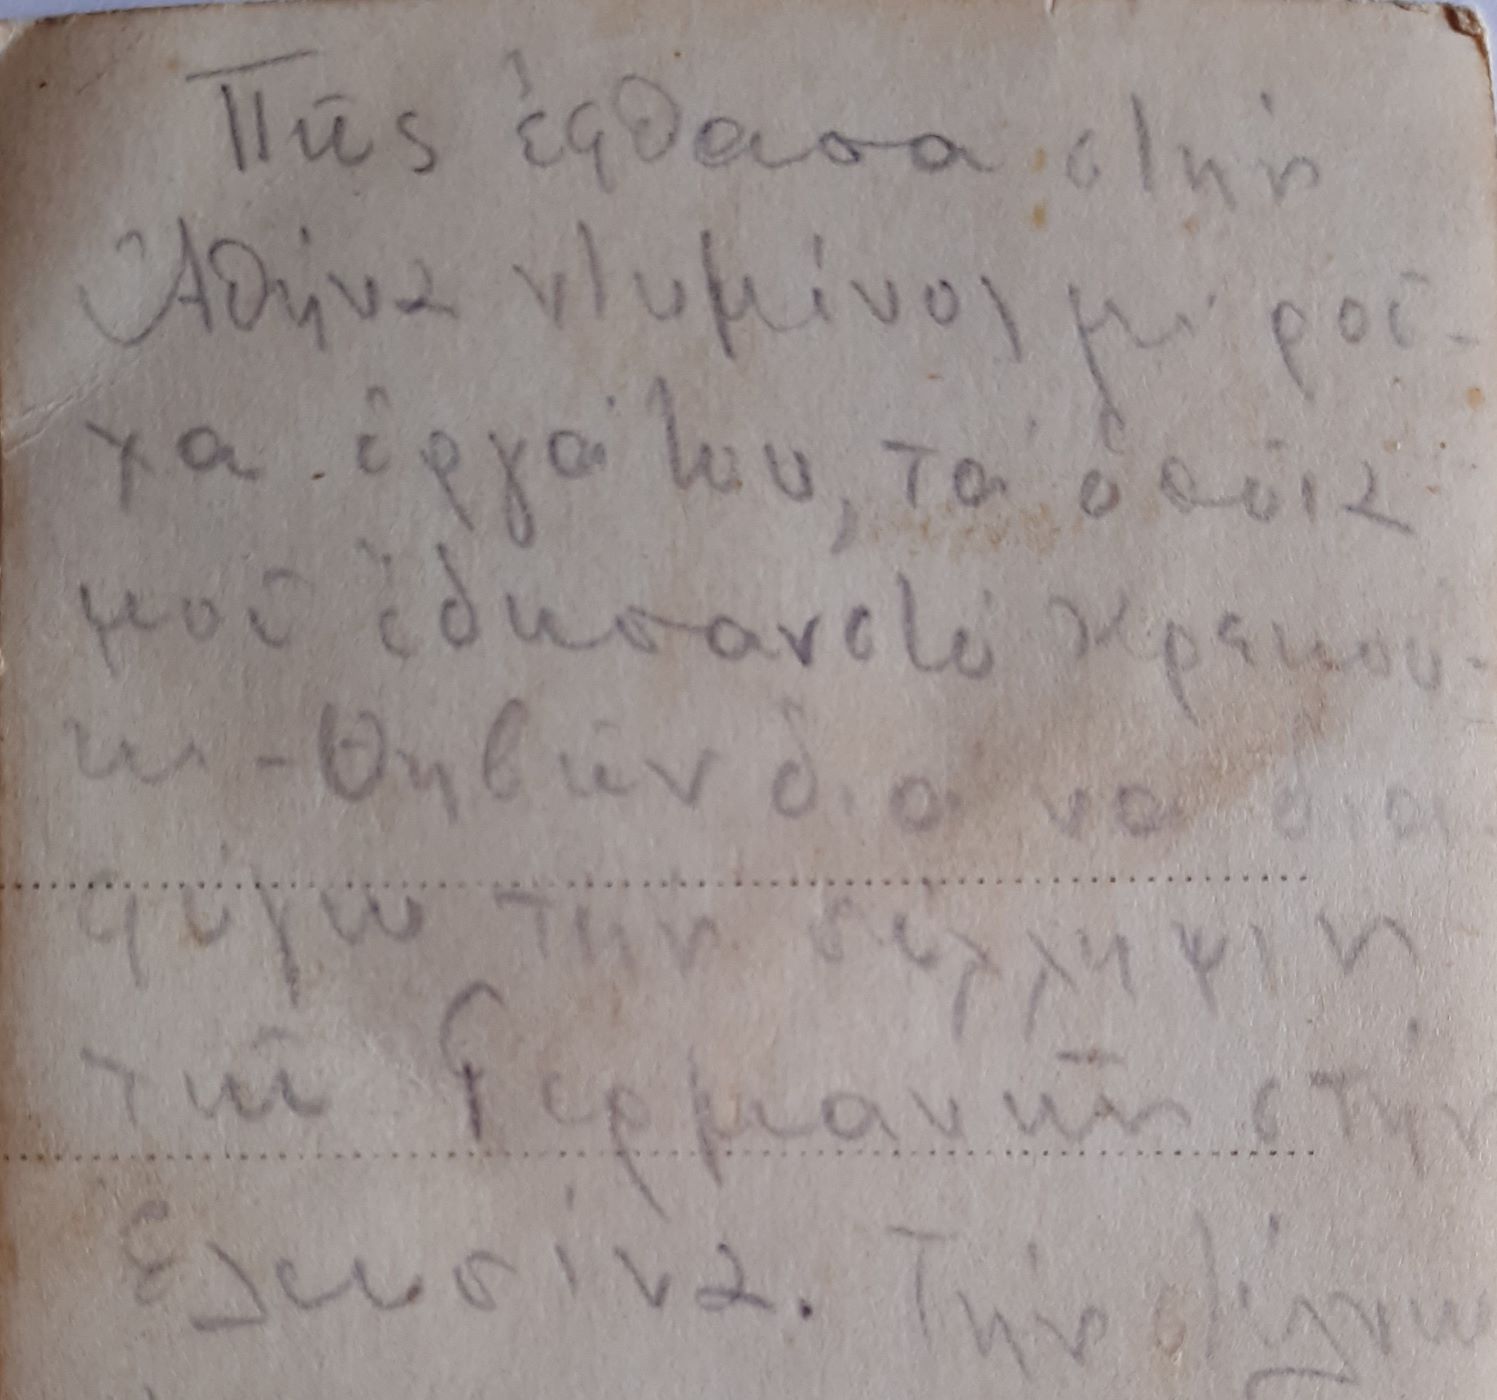 Πῶς ἔφθασα στὴν
Ἀθήνα ντυμένος μὲ ροῦ-
χα ἐργάτου, τὰ ὁποῖα
μοῦ ἔδωσαν στὸ Κρεκού-
κι - Θηβῶν διὰ νὰ δια
φύγω τὴν σύλληψιν
τῶν Γερμανῶν στὴν
Ἐλευσίνα. Τὴν στέλνω